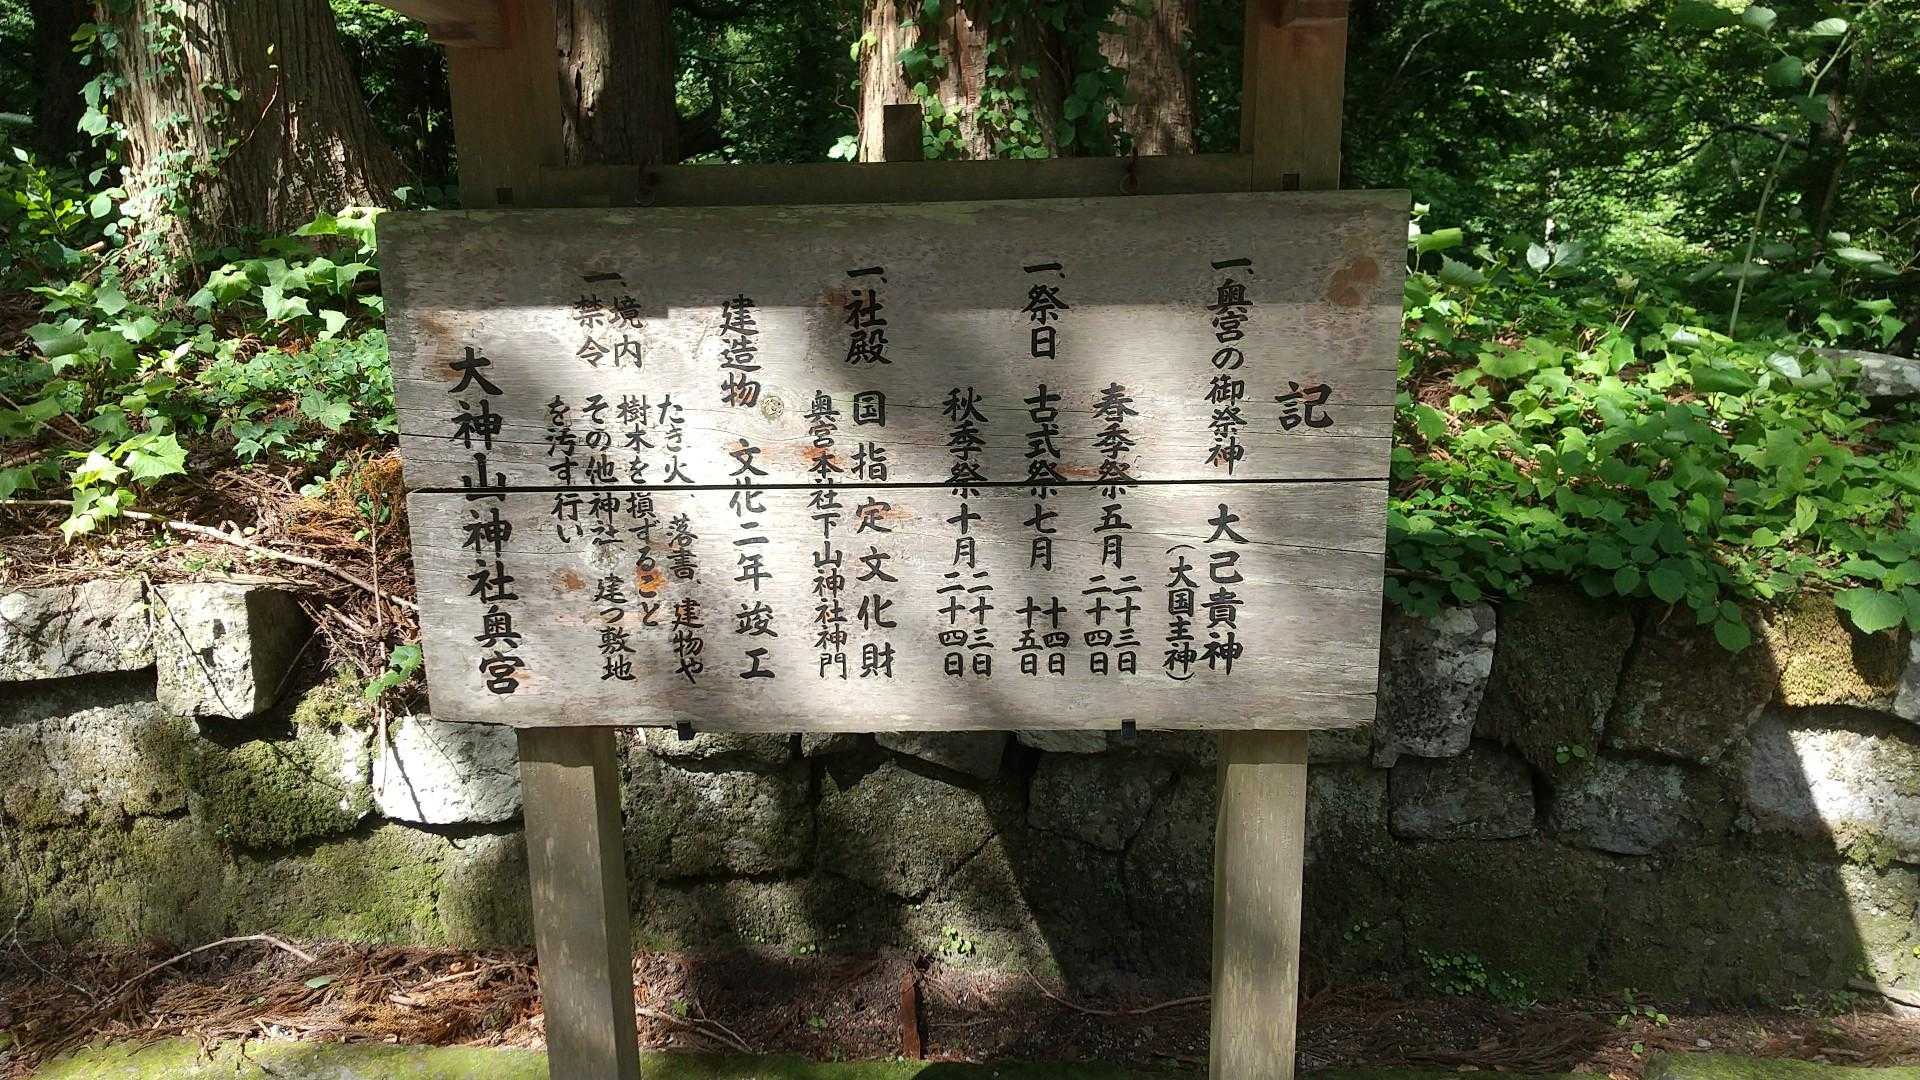 記
一、奥宮の御祭神 大己貴神
(大国主神)
春季祭 五月 二十三日
二十四日
一、祭日 古式祭 七月 十四日
十五日
秋季祭 十月 二十三日
二十四日
一、社殿 国指定文化財
奥宮本社下山神社神門
建造物 文化二年竣工
一、境内
禁令
たき火、落書、建物や
樹木を損ずること
その他神社 建つ敷地
を汚す行い
大神山神社奥宮